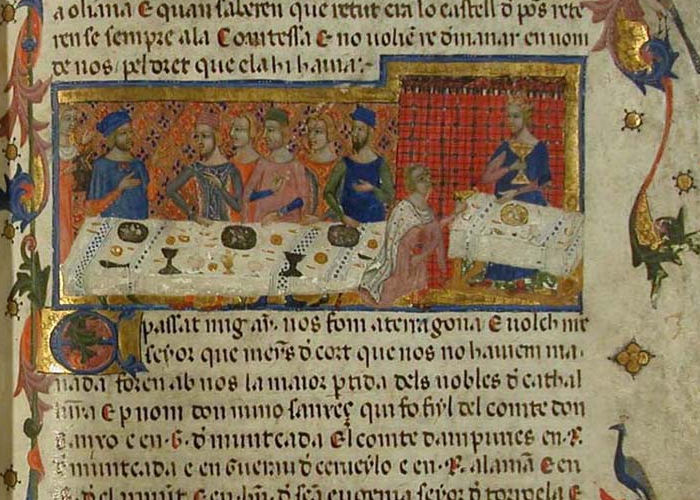 a oliana E quan saberen que retut era lo castell đ pōs rete
ren se sempre a la Comtessa E no uoliē re đmanar en nom
de nos pel dret que ela hi hauia·
passat mig ā· nos fom a terragona E uolch nre
seyor que meyns đ cort que nos no hauiem ma
nada foren ab nos la maior ptida dels nobles đ cathal
E p nom don nuno sanxeç qui fo fiyl del comte don
E en· G· đ muntcada El comte dampuries en· R·
đ muntcada e en Guerau đ cerueylo e en· R· alama E en
đ seā eugenia seyor đ torroela E